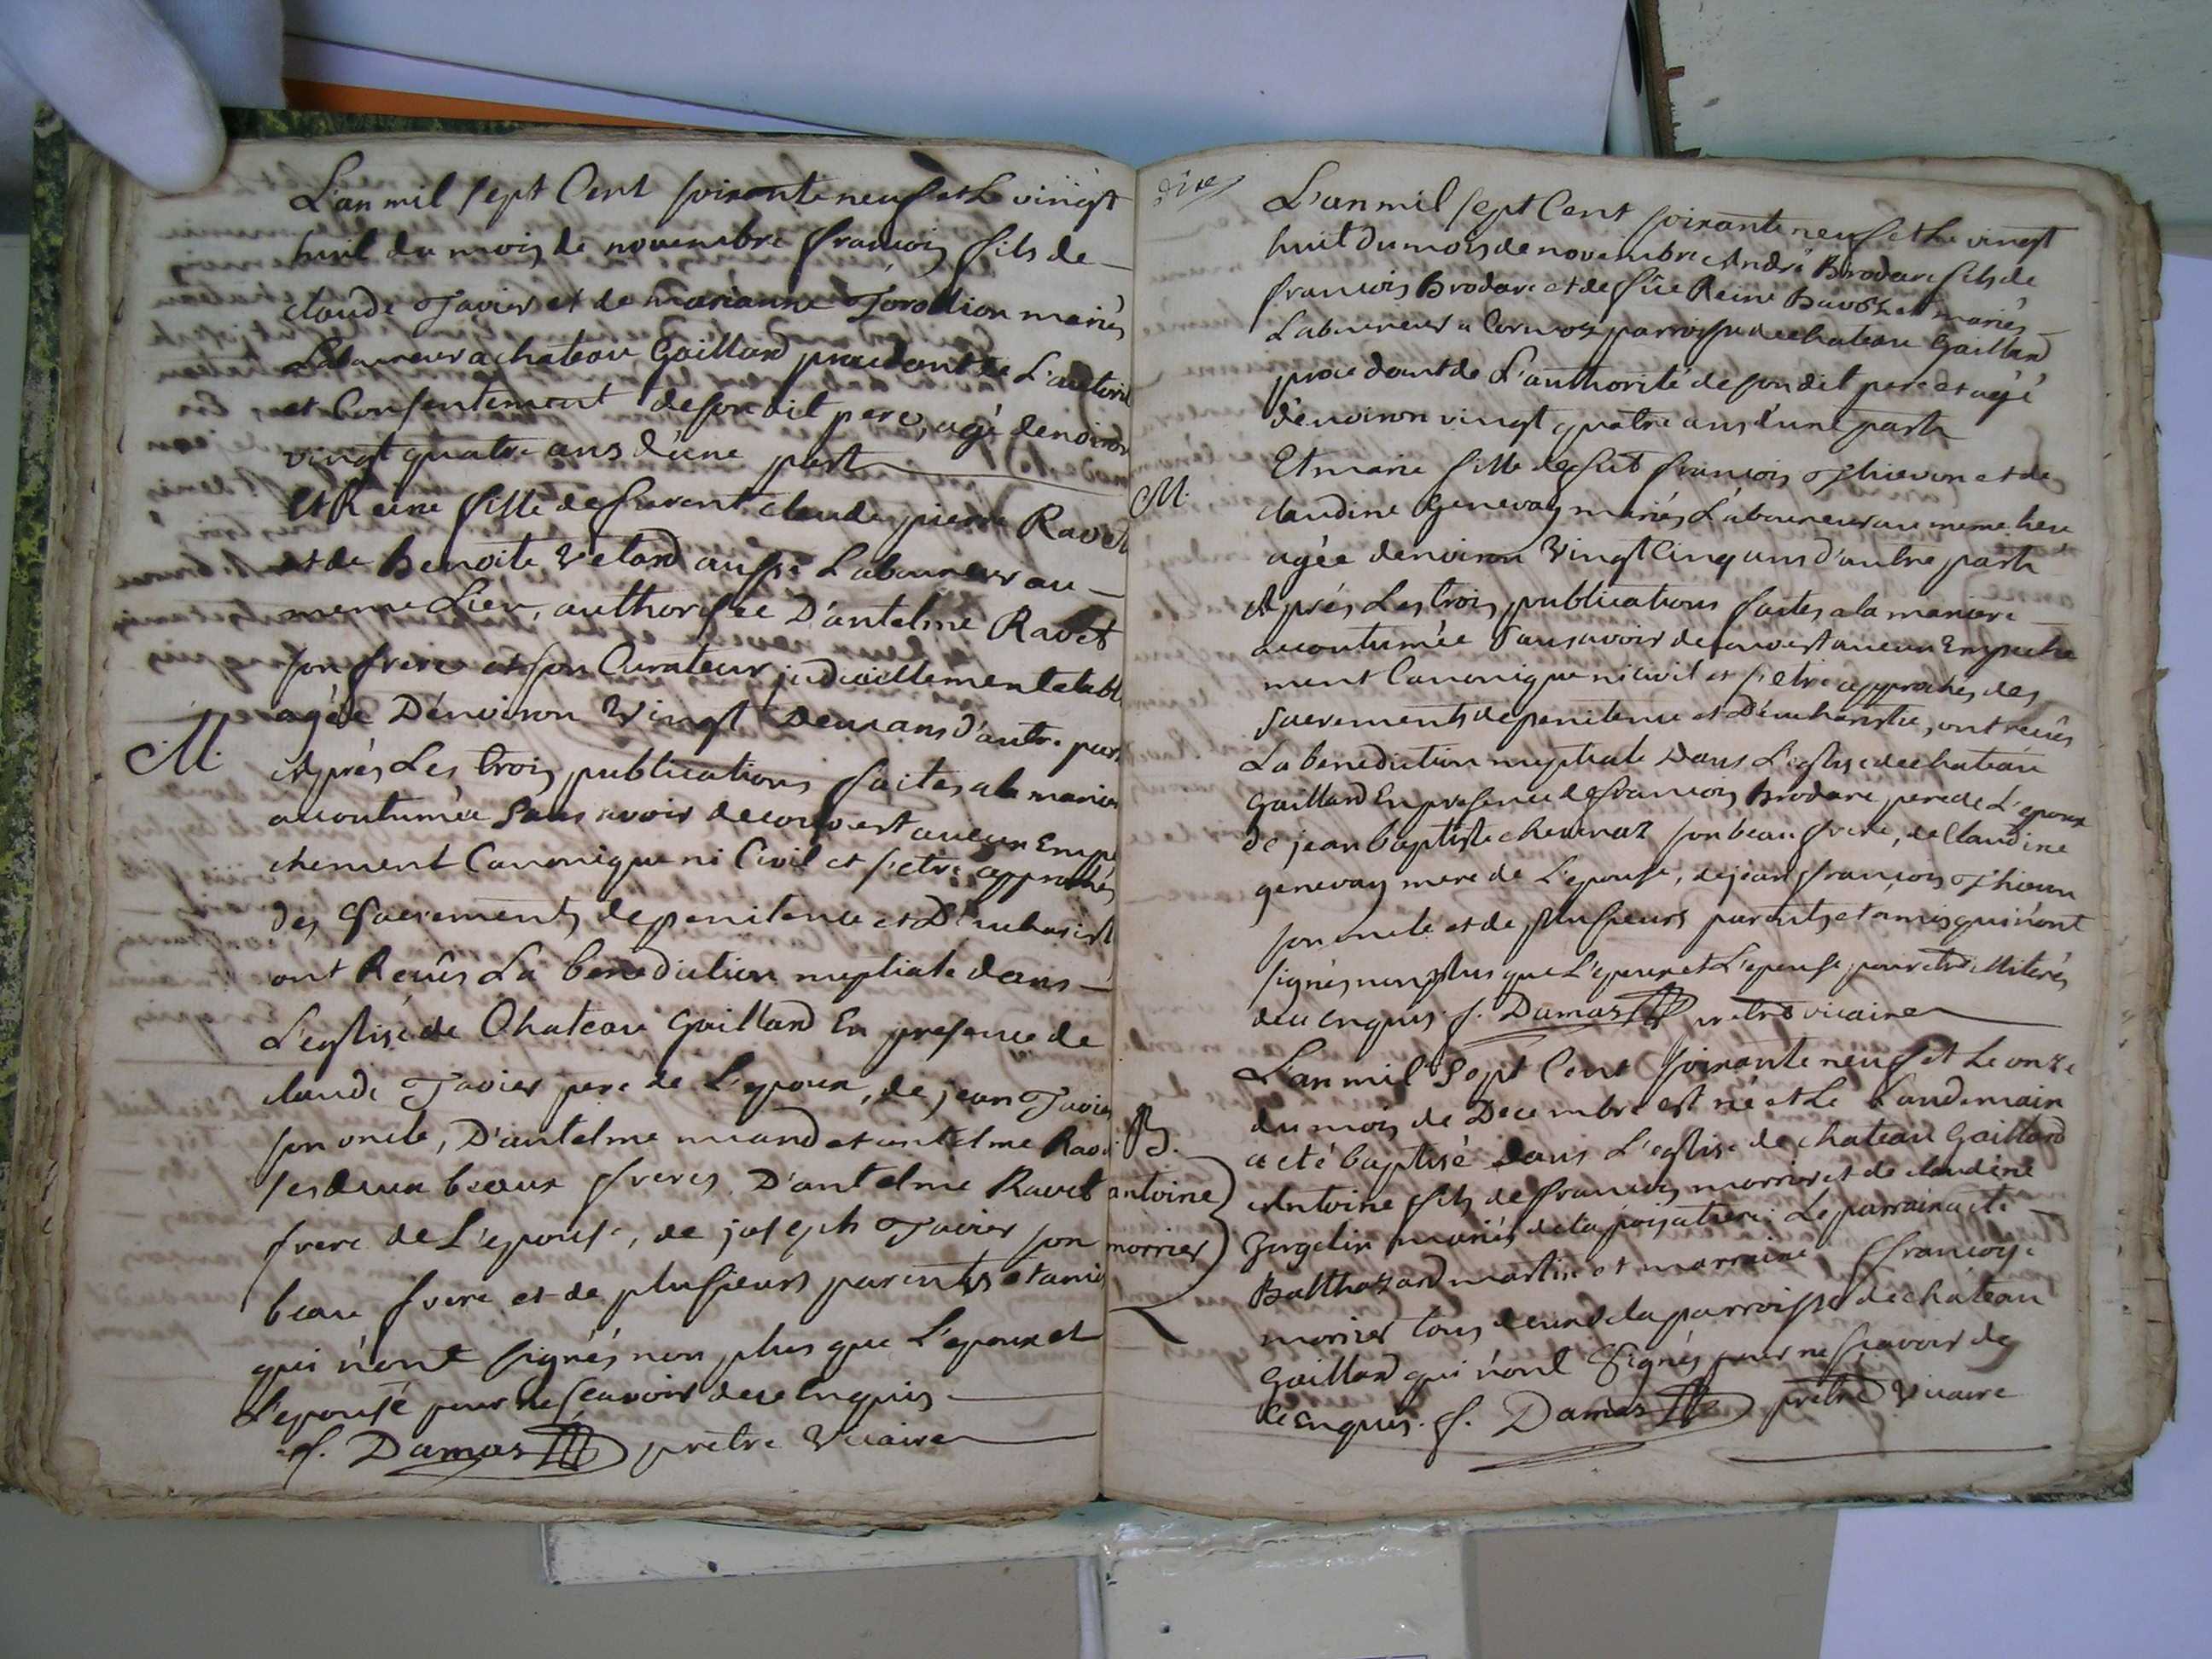 L'an mil sept Cent soixante neuf et Le vingt
huit du mois de novembre francois fils de
claude Tavier et de marianne Torollion mariés
Laboureur a chateau Gaillard procedant de L'autorit
et Consentement de son dit pere, agé denviron
vingt quatre ans d'une part
Et Reine fille de furent claude pierre Ravet
et de Benoite Vetard aussi Laboureur au
meme Lieu, authorisee D'antelme Ravet
son frere et son Curateur judiciellement etabl
agée D'environ Vingt Deux ans d'autre part
M
Aprés Les trois publications faites a la manier
acoutumée Sans avoir decouvert aucun Empe
chement Canonique ni Civil et s'etre approchés
des Sacrements de penitence et D'eucharist
ont Recûs La benediction nuptiale dans
L'eglise de Chateau Gaillard En presence de
claude Tavier pere de L'epoux, de jean Tavier
son oncle, D'antelme et antelme Rav
ses deux beaux freres D'antelme Ravet
frere de L'epouse, de joseph Tavier son
beau frere et de plusieurs parents et amis
qui n'ont signés non plus que L'epoux et
L'epouse pour ne scavoir de ce Enquis
f. Damas prètre Vicaire
L'an mil sept Cent soixante neuf et Le vingt
huit du mois de novembre André Brodare fils de
francois Brodare et de fûe Reine mariés
Laboureur a Cormoz parroisse de chateau Gaillard
procedant de L'authorité de son dit pere et agé
d'environ vingt quatre ans d'une part
M.
Et marie fille de fut francois Thievon et de
claudine Genevay mariés Laboureur au meme lieu
agée denviron Vingt Cinq ans d'autre part
Aprés Les trois publications faites a la maniere
acoutumée Sans avoir decouvert aucun Empeche
ment Canonique ni civil et s'etre approchés des
Sacrements de penitence et D'eucharistie, ont recûs
La benediction nuptiale Dans L'eglise de chateau
Gaillard En presence de francois Brodare pere de L'epoux
de jean baptiste chevenaz son beau frere, de Claudine
genevay mere de L'epouse, de jean francois Thievon
son oncle et de plusieurs parents et amis qui n'ont
signés non plus que L'epoux et L'epouse pour etre illiterés
de ce enquis f. Damas prètre vicaire
L'an mil Sept Cent soixante neuf et Le onze
du mois de Decembre est né et Le Landemain
B.
a eté baptisé dans L'eglise de chateau Gaillard
antoine
Antoine fils de francois morrier et de claudine
morrier
Gogelin mariés de la poisatiere. Le parrain a eté
Balthazard martin et marraine francoise
morier tous deux de la parroisse de chateau
Gaillard qui n'ont Signés pour ne scavoir de
ce enquis. f. Damas prètre Vicaire